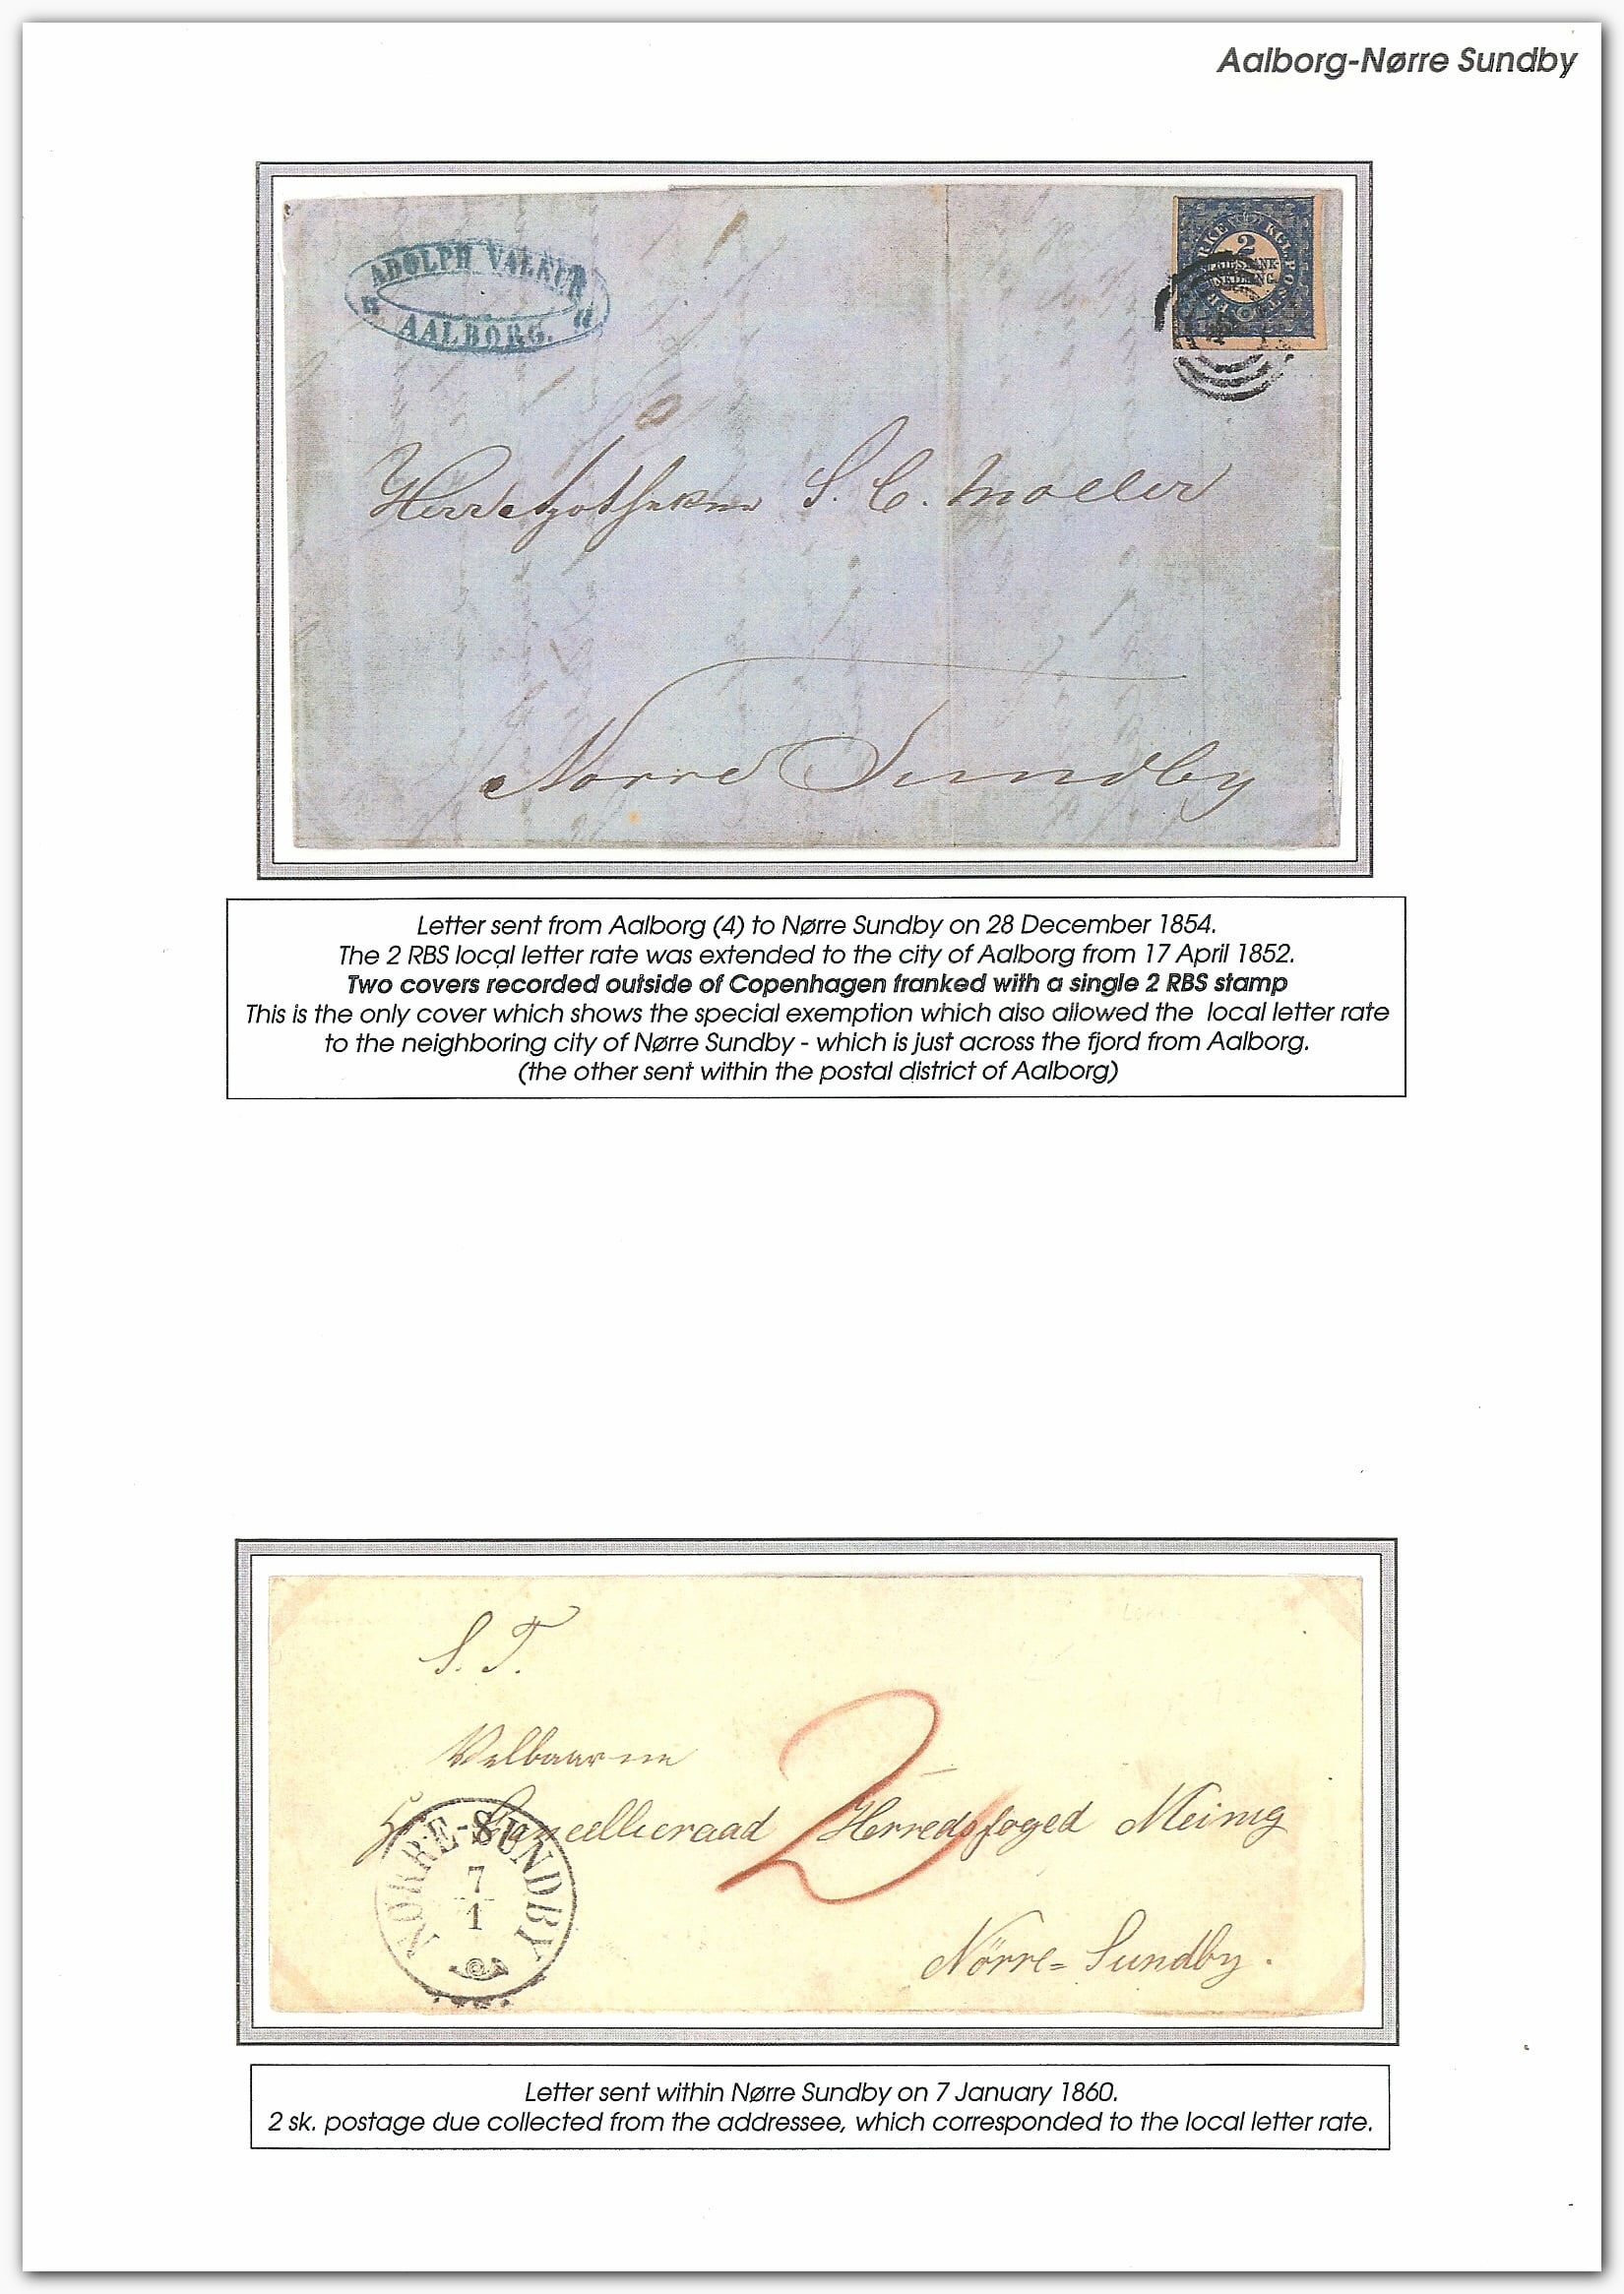 Aalborg-Nørre Sundby
ADOLPH VALEUR
AALBORG.
2
Herr Apotheker S. C. Moller
Nørre Sundby
Letter sent from Aalborg (4) to Nørre Sundby on 28 December 1854.
The 2 RBS local letter rate was extended to the city of Aalborg from 17 April 1852.
Two covers recorded outside of Copenhagen franked with a single 2 RBS stamp
This is the only cover which shows the special exemption which also allowed the local letter rate
to the neighboring city of Nørre Sundby - which is just across the fjord from Aalborg.
(the other sent within the postal district of Aalborg)
S. T.
2
Cancelliraad Herredsfoged Meinig
NØRRE-SUNDBY
7
1
Nörre= Sundby.
Letter sent within Nørre Sundby on 7 January 1860.
2 sk. postage due collected from the addressee, which corresponded to the local letter rate.